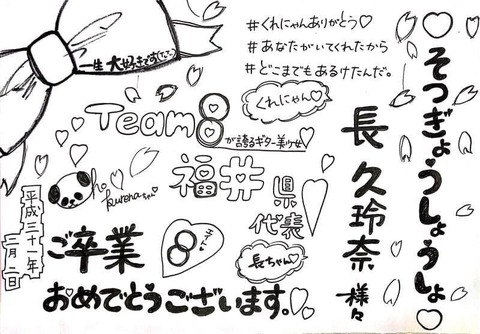 ♡そつぎょうしょうしょ♡
長久玲奈 様々
#くれにゃんありがとう♡
#あなたがいてくれたから
#どこまでもあるけたんだ。
一生大好きです
くれにゃん♡
Team8
が誇るギター美少女♡
福井県
代表
kurenaちゃん♡
8
チーム
長ちゃん♡
ご卒業
おめでとうございます。
平成三十一年
二月二日